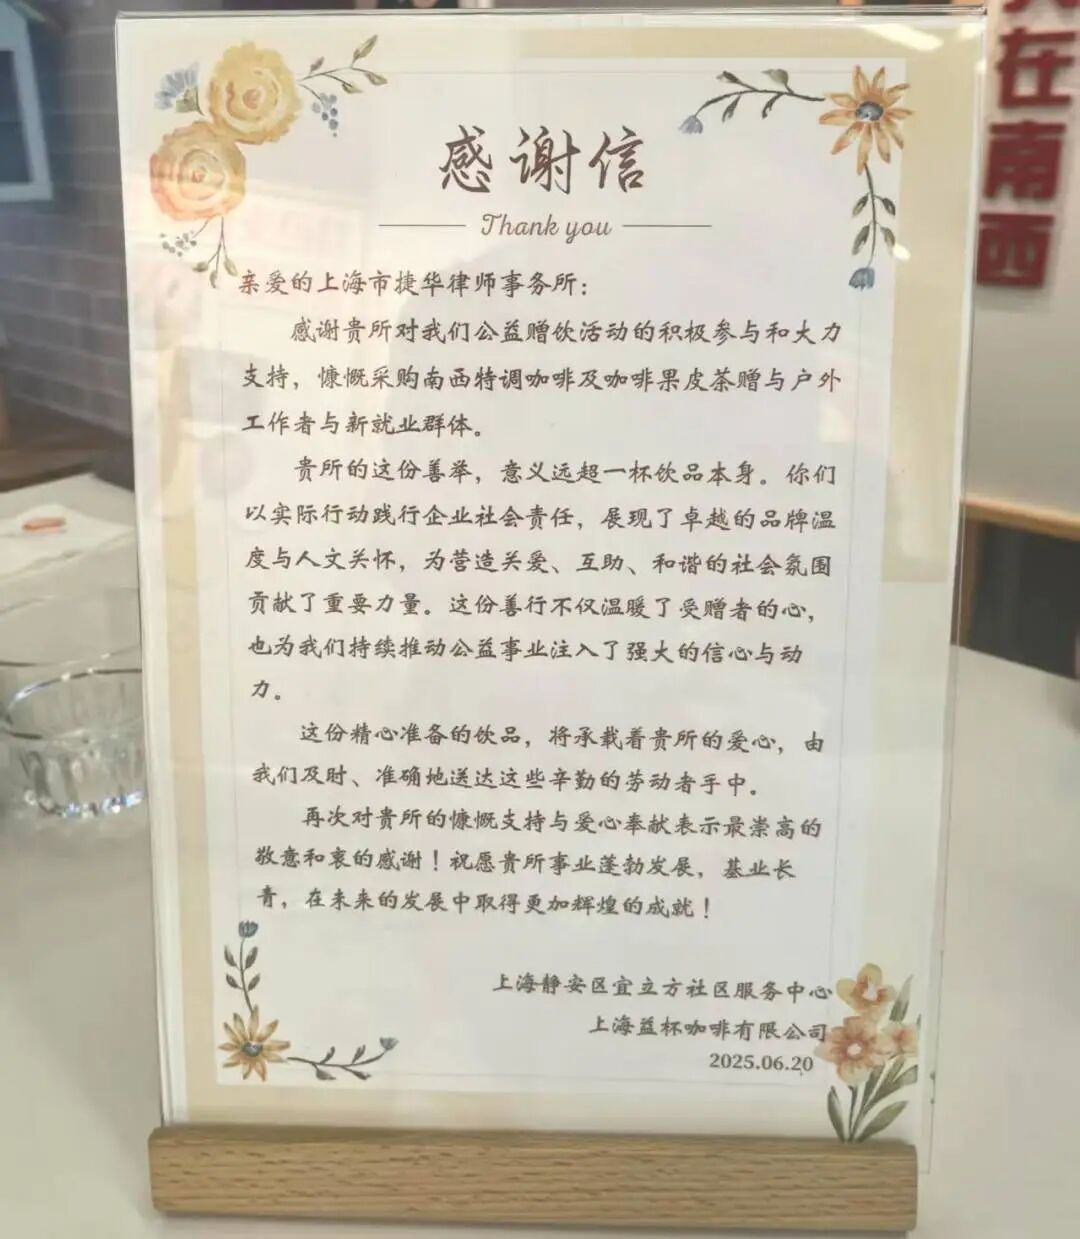 在南西
感谢信
Thank you
亲爱的上海市捷华律师事务所：
感谢贵所对我们公益赠饮活动的积极参与和大力
支持，慷慨采购南西特调咖啡及咖啡果皮茶赠与户外
工作者与新就业群体。
贵所的这份善举，意义远超一杯饮品本身。你们
以实际行动践行企业社会责任，展现了卓越的品牌温
度与人文关怀，为营造关爱、互助、和谐的社会氛围
贡献了重要力量。这份善行不仅温暖了受赠者的心，
也为我们持续推动公益事业注入了强大的信心与动
力。
这份精心准备的饮品，将承载着贵所的爱心，由
我们及时、准确地送达这些辛勤的劳动者手中。
再次对贵所的慷慨支持与爱心奉献表示最崇高的
敬意和衷的感谢！祝愿贵所事业蓬勃发展，基业长
青，在未来的发展中取得更加辉煌的成就！
上海静安区宜立方社区服务中心
上海益杯咖啡有限公司
2025.06.20